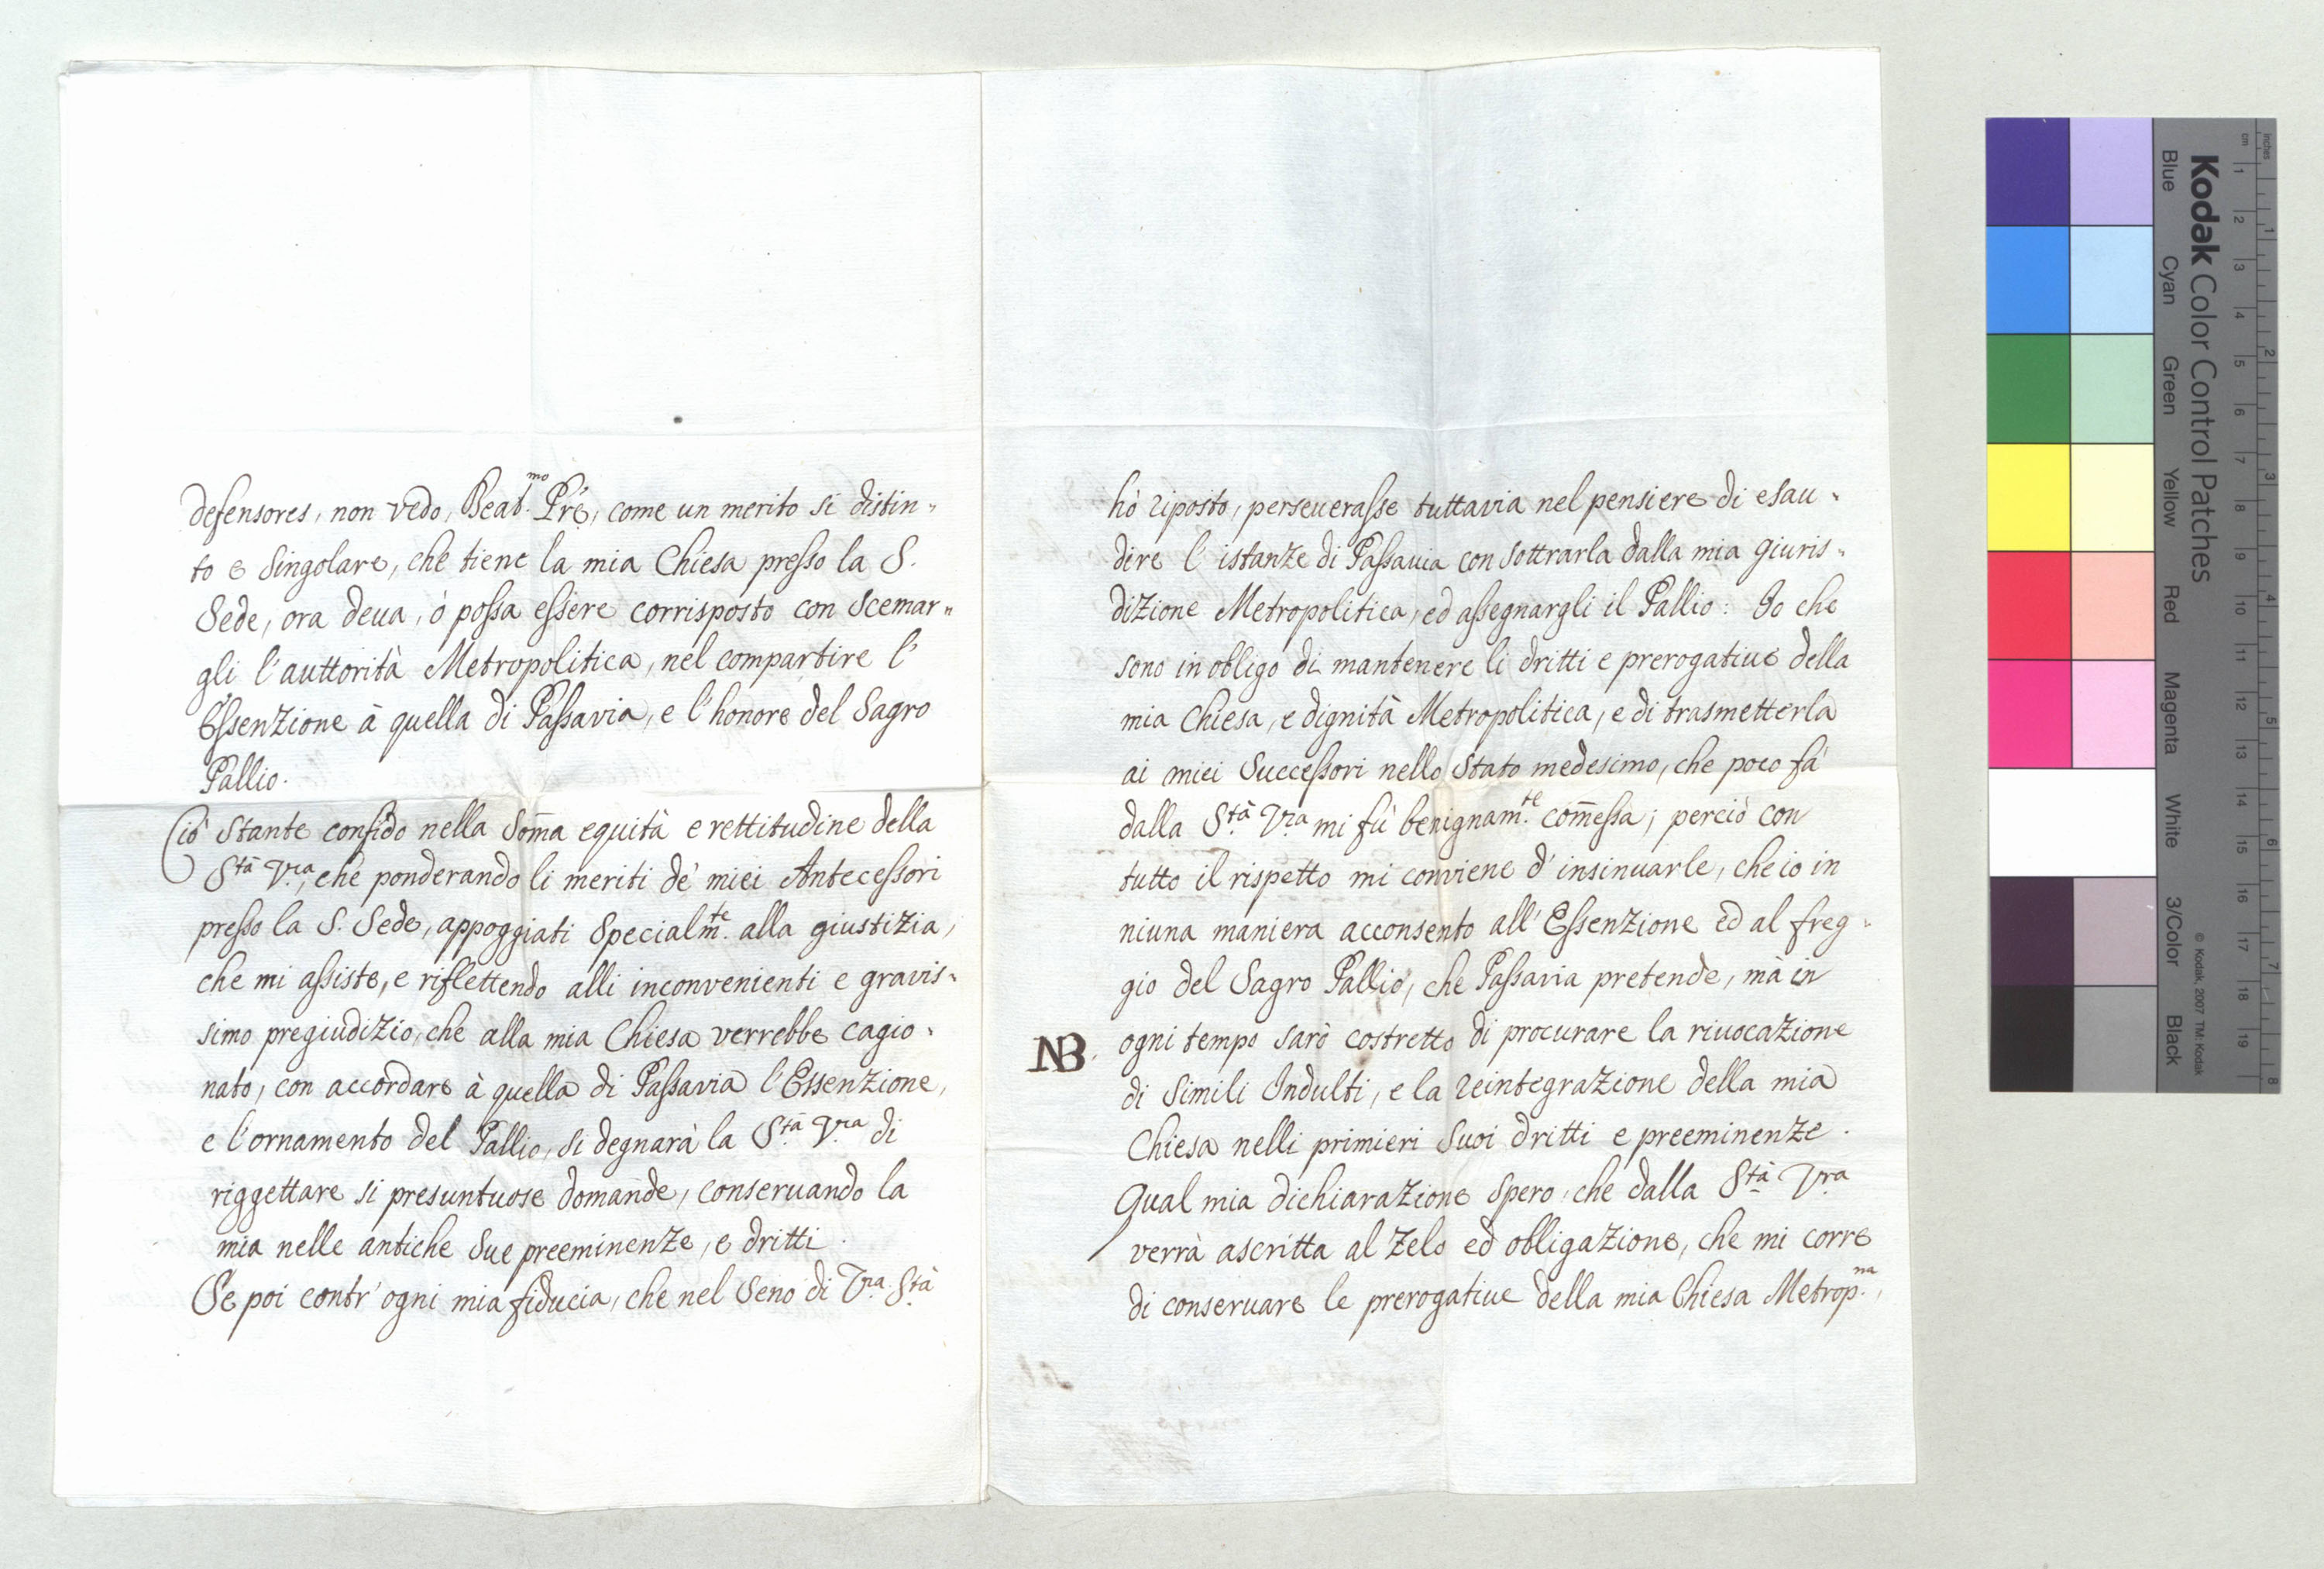 defensores, non vedo, Beat.mo Prê, come un merito si distin„
to e Singolare, che tiene la mia Chiesa presso la S.
Sede, ora deua, ò possa essere corrisposto con Scemar„
gli l'auttorità Metropolitica, nel compartire l'
Essenzione à quella di Passavia, e l'honore del Sagro
Pallio.
Ciò Stante confido nella Som̄a equità e rettitudine della
Stà Vra, che ponderando li meriti de' miei Antecessori
presso la S. Sede, appoggiati Specialm.te alla giustizia,
che mi assiste, e riflettendo alli inconvenienti e gravis„
simo pregiudizio, che alla mia Chiesa verrebbe cagio„
nato, con accordare à quella di Passavia l'Essenzione,
e l'ornamento del Pallio, si degnarà la Stà Vra di
riggettare si presuntuose domande, conseruando la
mia nelle antiche Sue preeminenze, e dritti.
Se poi contr' ogni mia fiducia, che nel Seno di Vra Stà
hò riposto, perseuerasse tuttavia nel pensiere di esau„
dire l'istanze di Passauia con sottrarla dalla mia giuris„
dizione Metropolitica, ed assegnargli il Pallio: Io che
sono in obligo di mantenere li dritti e prerogatiue della
mia Chiesa, e dignità Metropolitica, e di trasmetterla
ai miei Successori nello Stato medesimo, che poco fà
dalla Stà Vra mi fù benignam.te com̄essa; perciò con
tutto il rispetto mi conviene d'insinuarle, che io in
niuna maniera acconsento all'Essenzione ed al freg„
gio del Sagro Pallio, che Passavia pretende, mà in
NB. ogni tempo sarò costretto di procurare la riuocazione
di Simili Indulti, e la reintegrazione della mia
Chiesa nelli primieri Suoi dritti e preeminenze.
Qual mia dichiarazione Spero, che dalla Stà Vra
verrà ascritta al Zelo ed obligazione, che mi corre
di conseruare le prerogatiue della mia Chiesa Metrop.na,
Kodak Color Control Patches
Blue Cyan Green Yellow Red Magenta White 3/Color Black
© Kodak, 2007 TM: Kodak
cm 1 2 3 4 5 6 7 8 9 10 11 12 13 14 15 16 17 18 19
inches 1 2 3 4 5 6 7 8